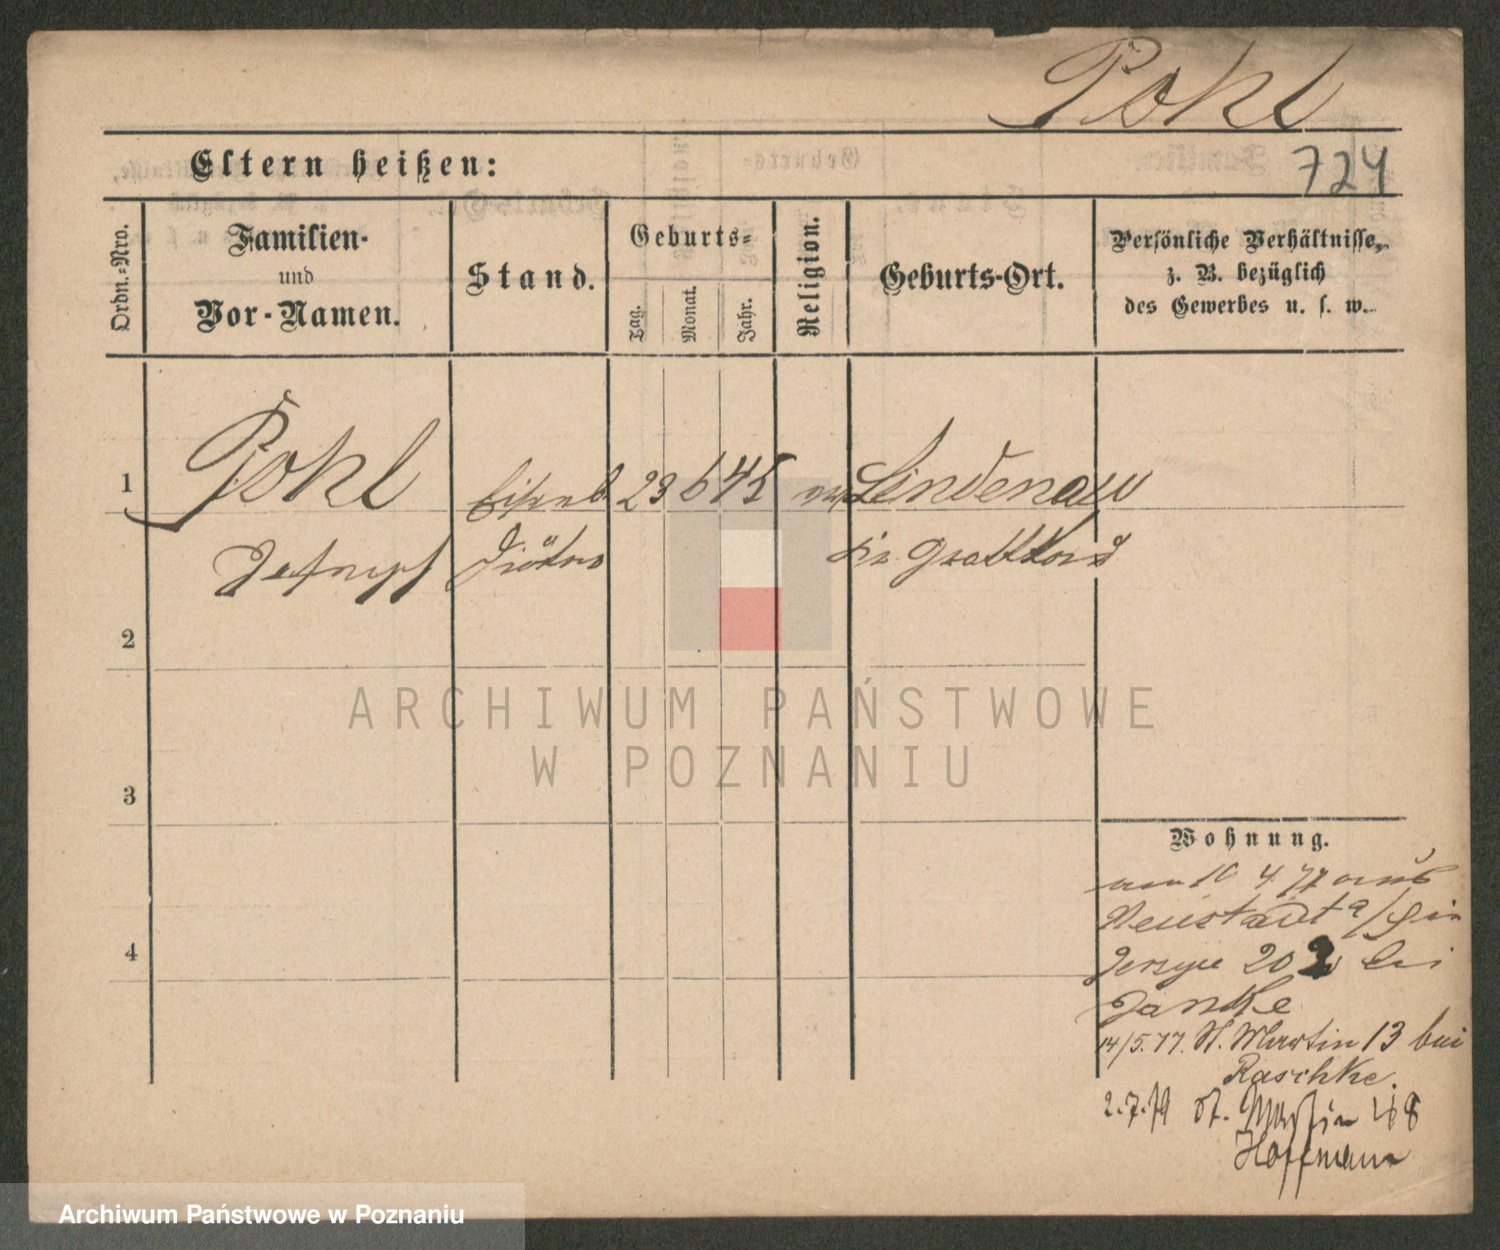 Pohl
Eltern heißen:
724
Ordn.=Nro.
Familien-
und
Vor-Namen.
Stand.
Geburts=
Tag.
Monat.
Jahr.
Religion.
Geburts-Ort.
Persönliche Verhältnisse,
z. B. bezüglich
des Gewerbes u. s. w.
1
Pohl
Eisenb.
23
6
45
Lindenau
Joseph
Diätar
Kr. Grottkau
2
3
4
Wohnung.
10 4 77 aus
Neustadt
Jersyce 20 bei
Janke
14/5.77. St. Martin 13 bei
Raschke.
2.7.79 St. Martin 48
Hoffmann
ARCHIWUM PAŃSTWOWE
W POZNANIU
Archiwum Państwowe w Poznaniu